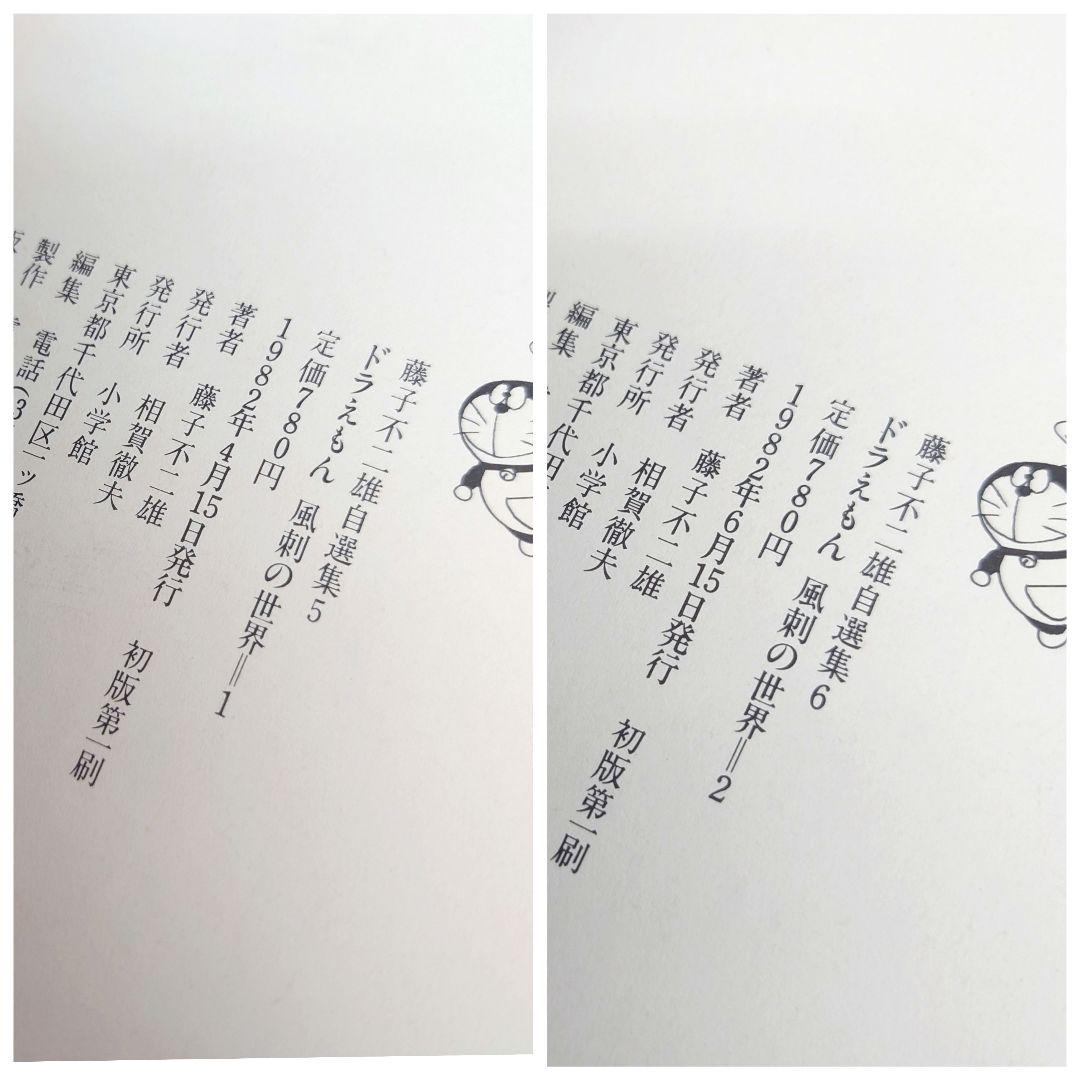 藤子不二雄自選集5
ドラえもん 風刺の世界=1
定価780円
1982年4月15日発行 初版第一刷
著者 藤子不二雄
発行者 相賀徹夫
発行所 小学館
東京都千代田区一ッ橋
編集 電話(3
製作
藤子不二雄自選集6
ドラえもん 風刺の世界=2
定価780円
1982年6月15日発行 初版第一刷
著者 藤子不二雄
発行者 相賀徹夫
発行所 小学館
東京都千代田
編集